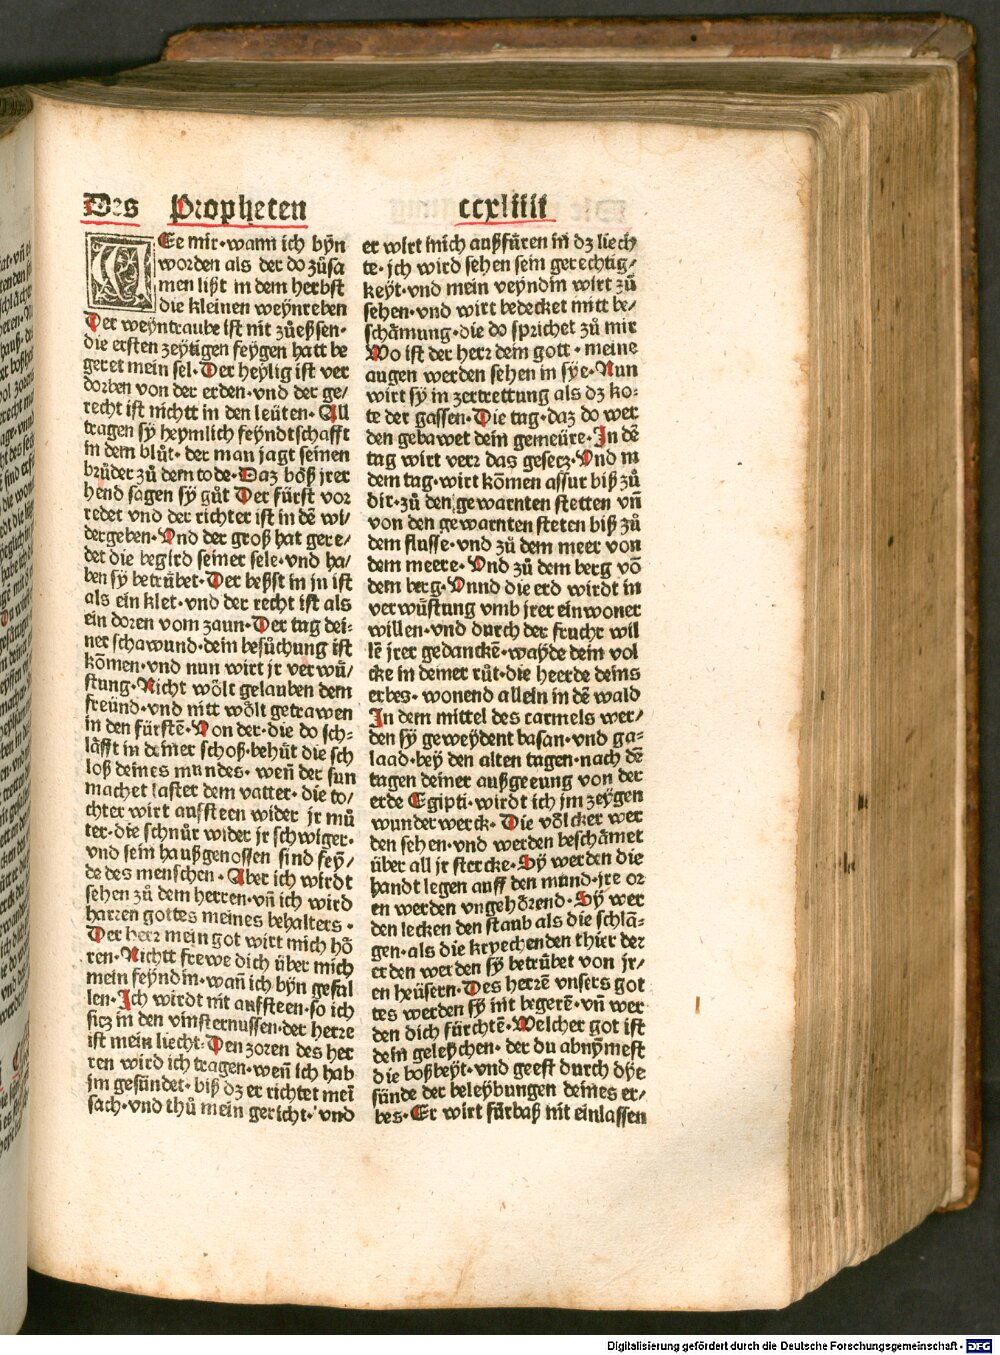 Des Propheten ccxliiii
WEe mir·wann ich bÿn
worden als der do zůsa
men lißt in dem herbst
die kleinen weÿnreben
Der weÿntraube ist nit zůeßsen·
die ersten zeÿtigen feÿgen hatt be
geret mein sel·Der heÿlig ist ver
dorben von der erden·vnd der ge/
recht ist nichtt in den leüten·All
tragen sÿ heÿmlich feÿndtschafft
in dem blůt·der man jagt seinen
brůder zů dem tode·Daz böß jrer
hend sagen sÿ gůt Der fürst vor
redet vnd der richter ist in dē wi/
dergeben·Vnd der groß hat gere/
det die begird seiner sele·vnd ha/
ben sÿ betrübet·Der beßst in jn ist
als ein klet·vnd der recht ist als
ein doren vom zaun·Der tag dei-
ner schawund·dein besůchung ist
kōmen·vnd nun wirt jr verwü/
stung·Nicht wölt gelauben dem
freünd·vnd nitt wölt getrawen
in den fürstē·Von der·die do sch-
läfft in deiner schoß·behüt die sch
loß deines mundes·weñ der sun
machet laster dem vatter·die to/
chter wirt auffsteen wider jr mů
ter·die schnůr wider jr schwiger·
vnd sein haußgenossen sind feÿ/
de des menschen·Aber ich wirdt
sehen zů dem herren·vñ ich wird
harren gottes meines behalters·
Der herr mein got wirt mich hö
ren·Nichtt frewe dich über mich
mein feÿndin·wañ ich bÿn gefal
len·Ich wirdt nit auffsteen·so ich
sicz in den vinsternussen·der herre
ist mein liecht·Den zoren des her
ren wird ich tragen·weñ ich hab
jm gesündet·biß dz er richtet mei
sach·vnd thů mein gericht·vnd
er wirt mich außfüren in dz liech
te·jch wird sehen sein gerechtig/
keÿt·vnd mein veÿndin wirt zů
sehen·vnd wirt bedecket mitt be/
schāmung·die do sprichet zů mir
Wo ist der herr dein gott·meine
augen werden sehen in sÿe·Nun
wirt sÿ in zertrettung als dz ko-
te der gassen·Die tag·daz do wer
den gebawet dein gemeüre·In dē
tag wirt verr das gesecz·Vnd in
dem tag·wirt kōmen assur biß zů
dir·zů den gewarnten stetten vñ
von den gewarnten steten biß zů
dem flusse·vnd zů dem meer von
dem meere·Vnd zů dem berg vō
dem berg·Vnnd die erd wirdt in
verwüstung vmb jrer einwoner
willen·vnd durch der frucht wil
lē jrer gedanckē·waÿde dein vol
cke in deiner růt·die heerde deins
erbes·wonend allein in dē wald
In dem mittel des carmels wer/
den sÿ geweÿdent basan·vnd ga-
laad·beÿ den alten tagen·nach dē
tagen deiner außgeeung von der
erde Egipti·wirdt ich jm zeÿgen
wunderwerck·Die völcker wer
den sehen·vnd werden beschāmet
über all jr stercke·Sÿ werden die
handt legen auff den mund·jre or
en werden vngehörend·Sÿ wer
den lecken den staub als die schlā-
gen·als die krÿechenden thier der
erden werden sÿ betrübet von jr/
en heüsern·Des herrē vnsers got
tes werden sÿ nit begerē·vñ wer
den dich fürchtē·Welcher got ist
dein geleÿchen·der du abnÿmest
die boßheÿt·vnd geest durch dÿe
sünde der beleÿbungen deines er/
bes·Er wirt fürbaß nit einlassen
Digitalisierung gefördert durch die Deutsche Forschungsgemeinschaft - DFG